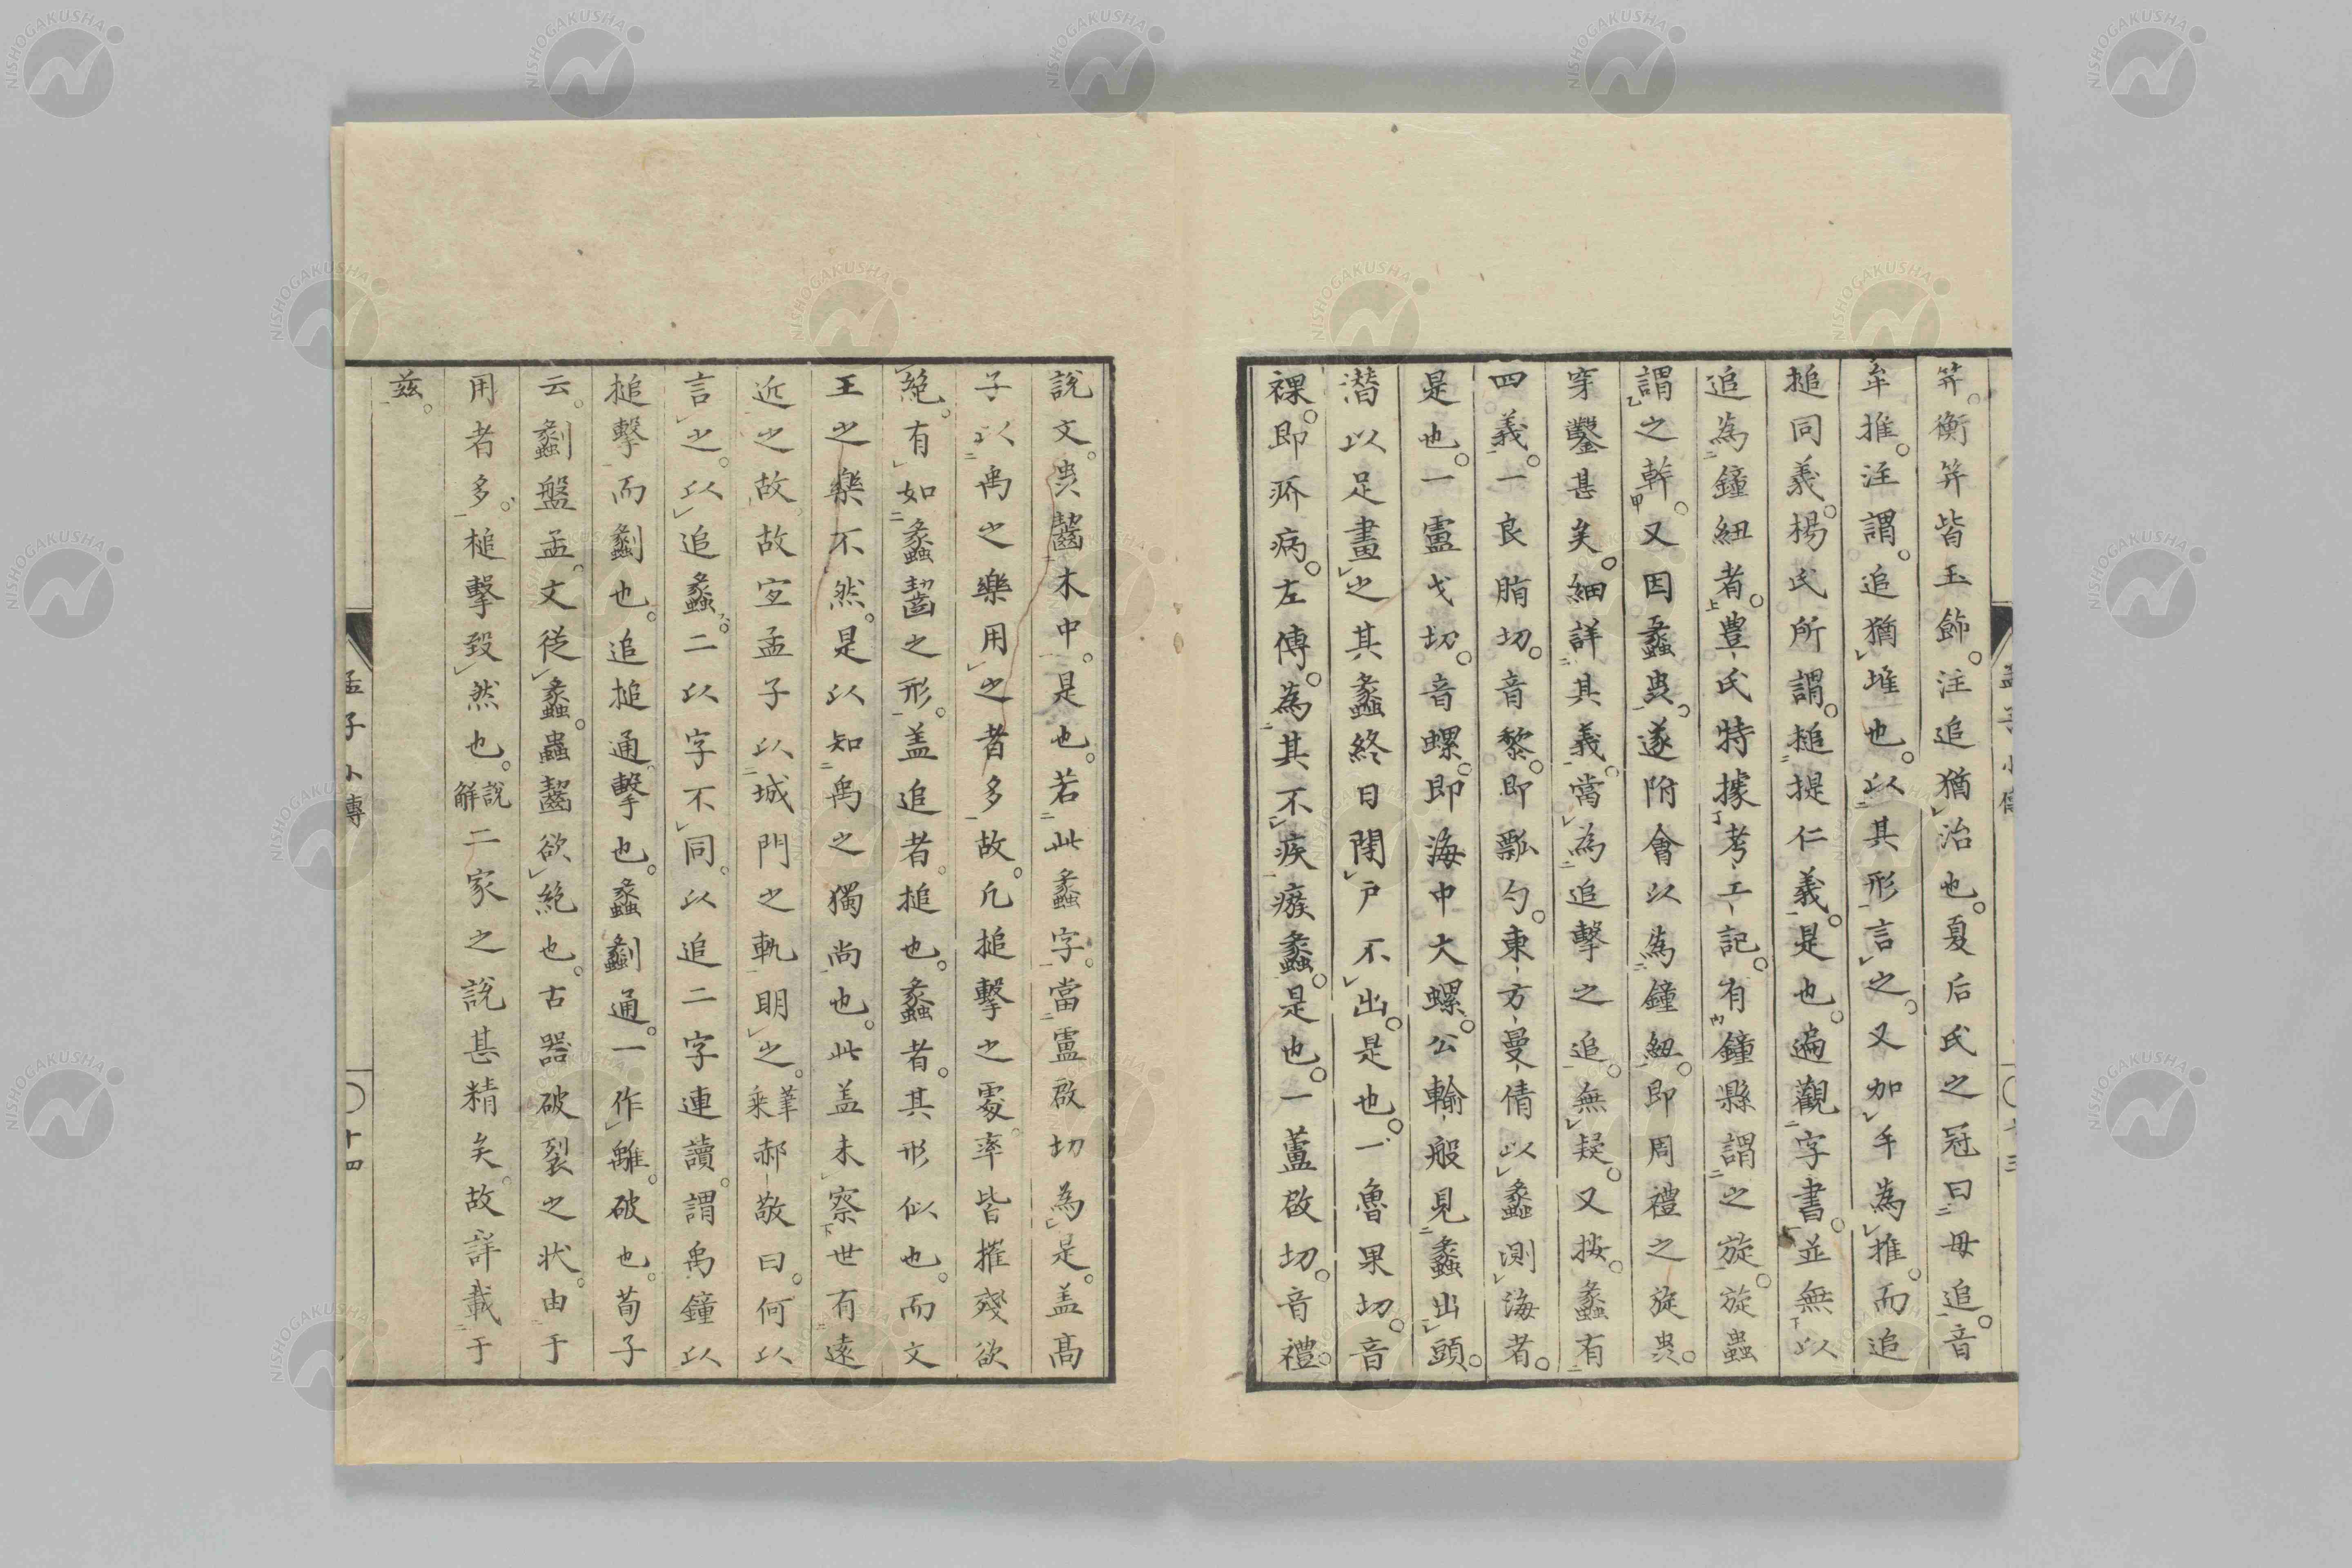 笄。衡笄皆玉飾。注追猶治也。夏后氏之冠曰毋追。音
牟推。注謂。追猶堆也。以其形言之。又加手為推。而追
搥同義。楊氏所謂。搥提仁義。是也。遍觀字書。並無以
追為鐘紐者。豊氏特據考工記。有鐘縣謂之旋。旋蟲
謂之幹。又因蠡蚩。遂附會以為鐘紐。即周禮之旋蚩。
穿鑿甚矣。細詳其義。當為追擊之追。無疑。又按。蠡有
四義。一良脂切。音黎。即瓢勺。東方曼倩以蠡測海者。
是也。一盧戈切。音螺。即海中大螺。公輸般見蠡出頭。
潛以足畫之其蠡終日閉戶不出。是也。一魯果切。音
裸。即疥病。左傳。為其不疾瘯蠡。是也。一蘆啟切。音禮。
說文。蚩齧木中。是也。若此蠡字。當盧啟切為是。盖高
子以禹之樂用之者多故。凡搥擊之處。率皆摧殘欲
絕。有如蠡齧之形。盖追者。搥也。蠡者。其形似也。而文
王之樂不然。是以知禹之獨尚也。此盖未察世有遠
近之故。故宜孟子以城門之軌明之。筆乘郝敬曰。何以
言之。以追蠡。二以字不同。以追二字連讀。謂禹鐘以
搥擊而劙也。追搥通。擊也。蠡劙通。一作離。破也。荀子
云。劙盤盂。文從蠡。蟲齧欲絕也。古器破裂之狀。由于
用者多。搥擊致然也。說解二家之說甚精矣。故詳載于
茲。
孟子小傳
十四